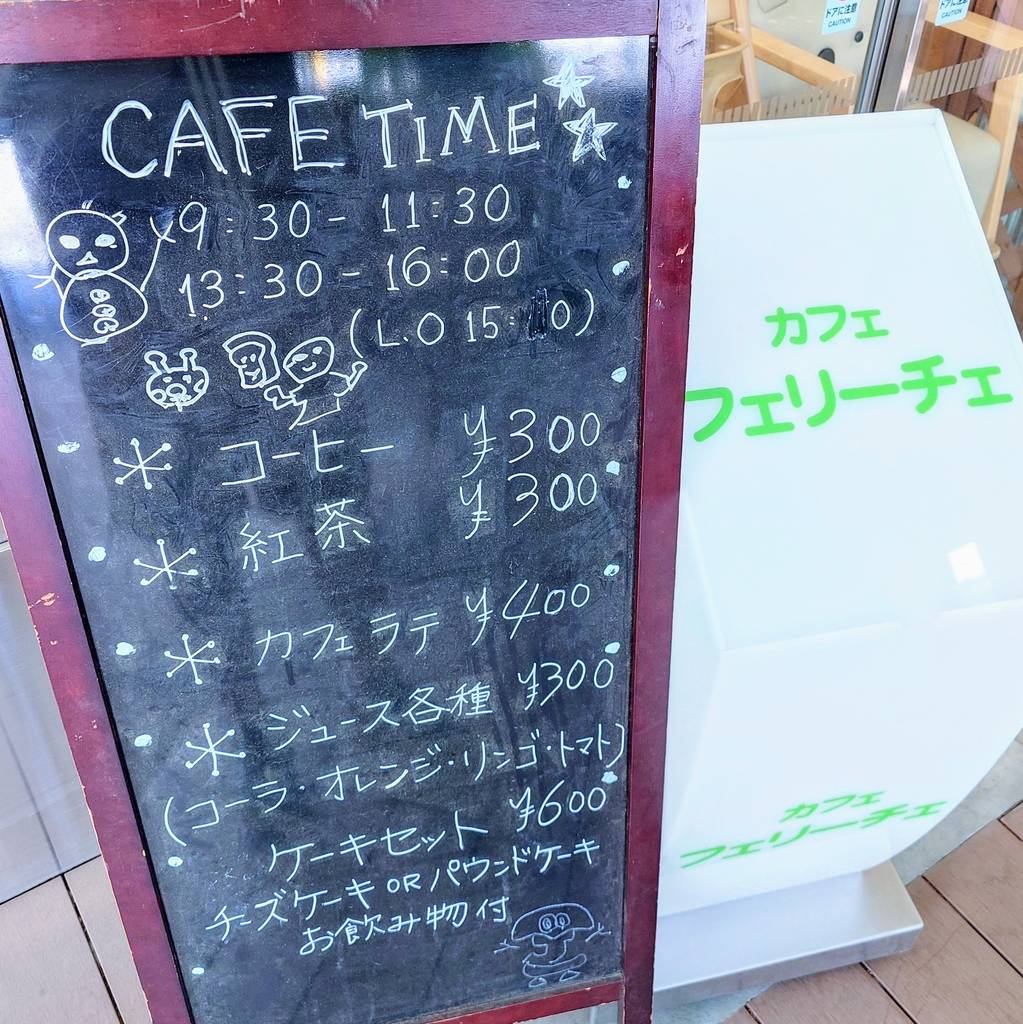 CAFE TIME
9:30 - 11:30
13:30 - 16:00
(L.O 15: 0)
コーヒー ¥300
紅茶 ¥300
カフェラテ ¥400
ジュース各種 ¥300
(コーラ・オレンジ・リンゴ・トマト)
ケーキセット ¥600
チーズケーキ OR パウンドケーキ
お飲み物付
カフェ
フェリーチェ
カフェ
フェリーチェ
ドアに注意
CAUTION
ドアに注意
CAUTION